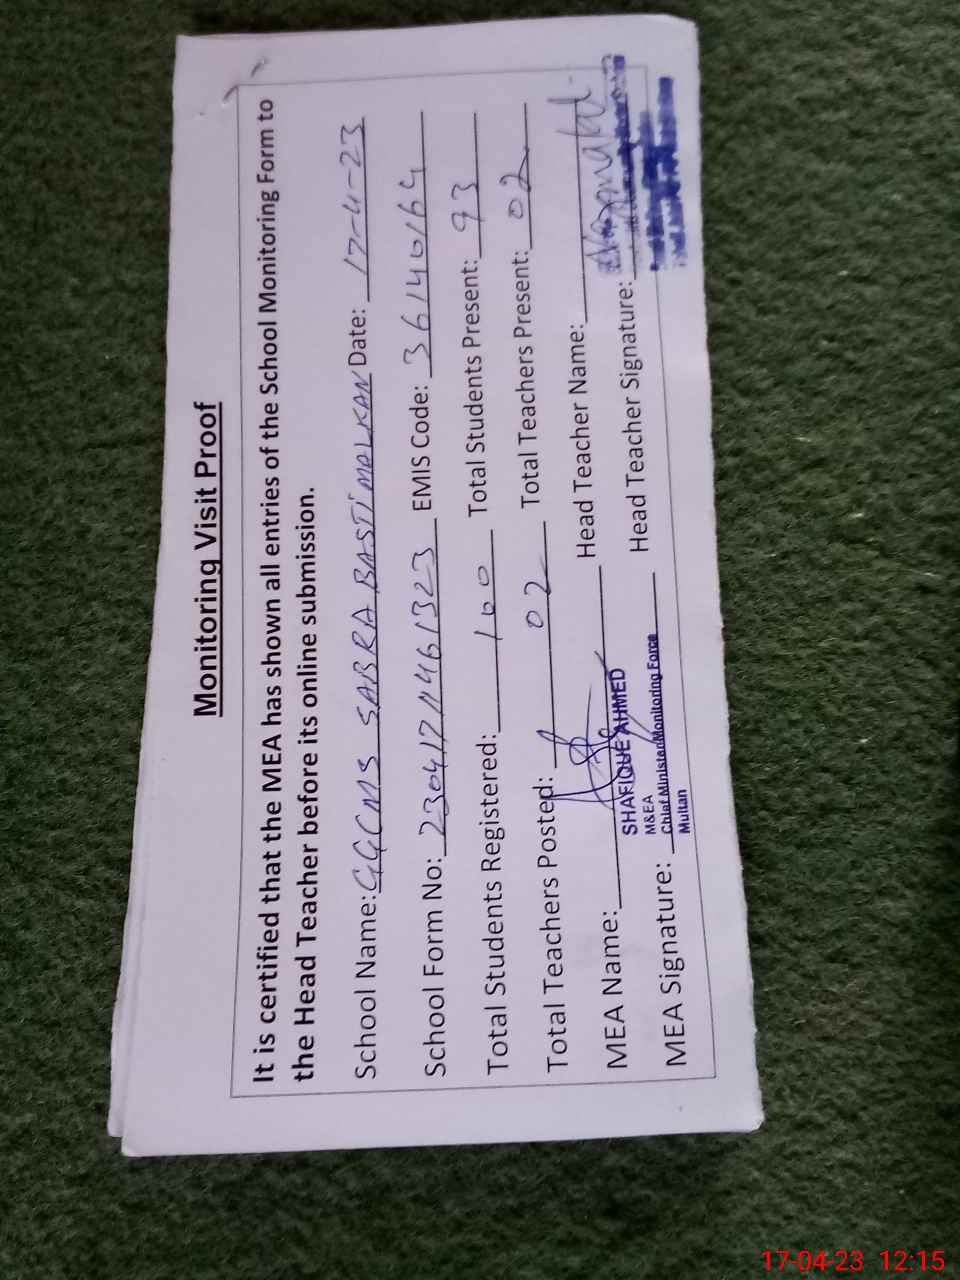 Monitoring Visit Proof
It is certified that the MEA has shown all entries of the School Monitoring Form to
the Head Teacher before its online submission.
School Name: GGCMS SABRA BASTI MALKAN Date: 17-4-23
School Form No: 23041711461323 EMIS Code: 36140164
Total Students Registered: 100 Total Students Present: 93
Total Teachers Posted: 02 Total Teachers Present: 02
MEA Name: Head Teacher Name:
SHAFIQUE AHMED
M&EA
Chief Minister Monitoring Force
Multan
MEA Signature: Head Teacher Signature:
17-04-23 12:15